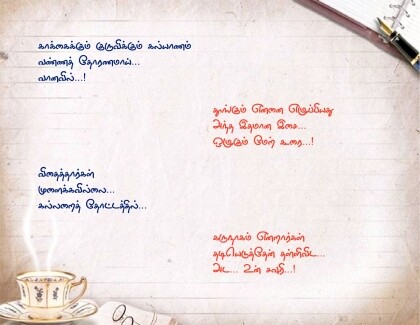 காக்கைக்கும் குருவிக்கும் கல்யாணம்
வண்ணத் தோரணமாய்...
வானவில்...!
தூங்கும் என்னை எழுப்பியது
அந்த இதமான இசை...
ஒழுகும் மேற் கூரை...!
விதைத்தார்கள்
முளைக்கவில்லை...
கல்லறைத் தோட்டத்தில்...
கருநாகம் என்றார்கள்
தடியெடுத்தேன் தள்ளிவிட...
அட... உன் சவுரி...!